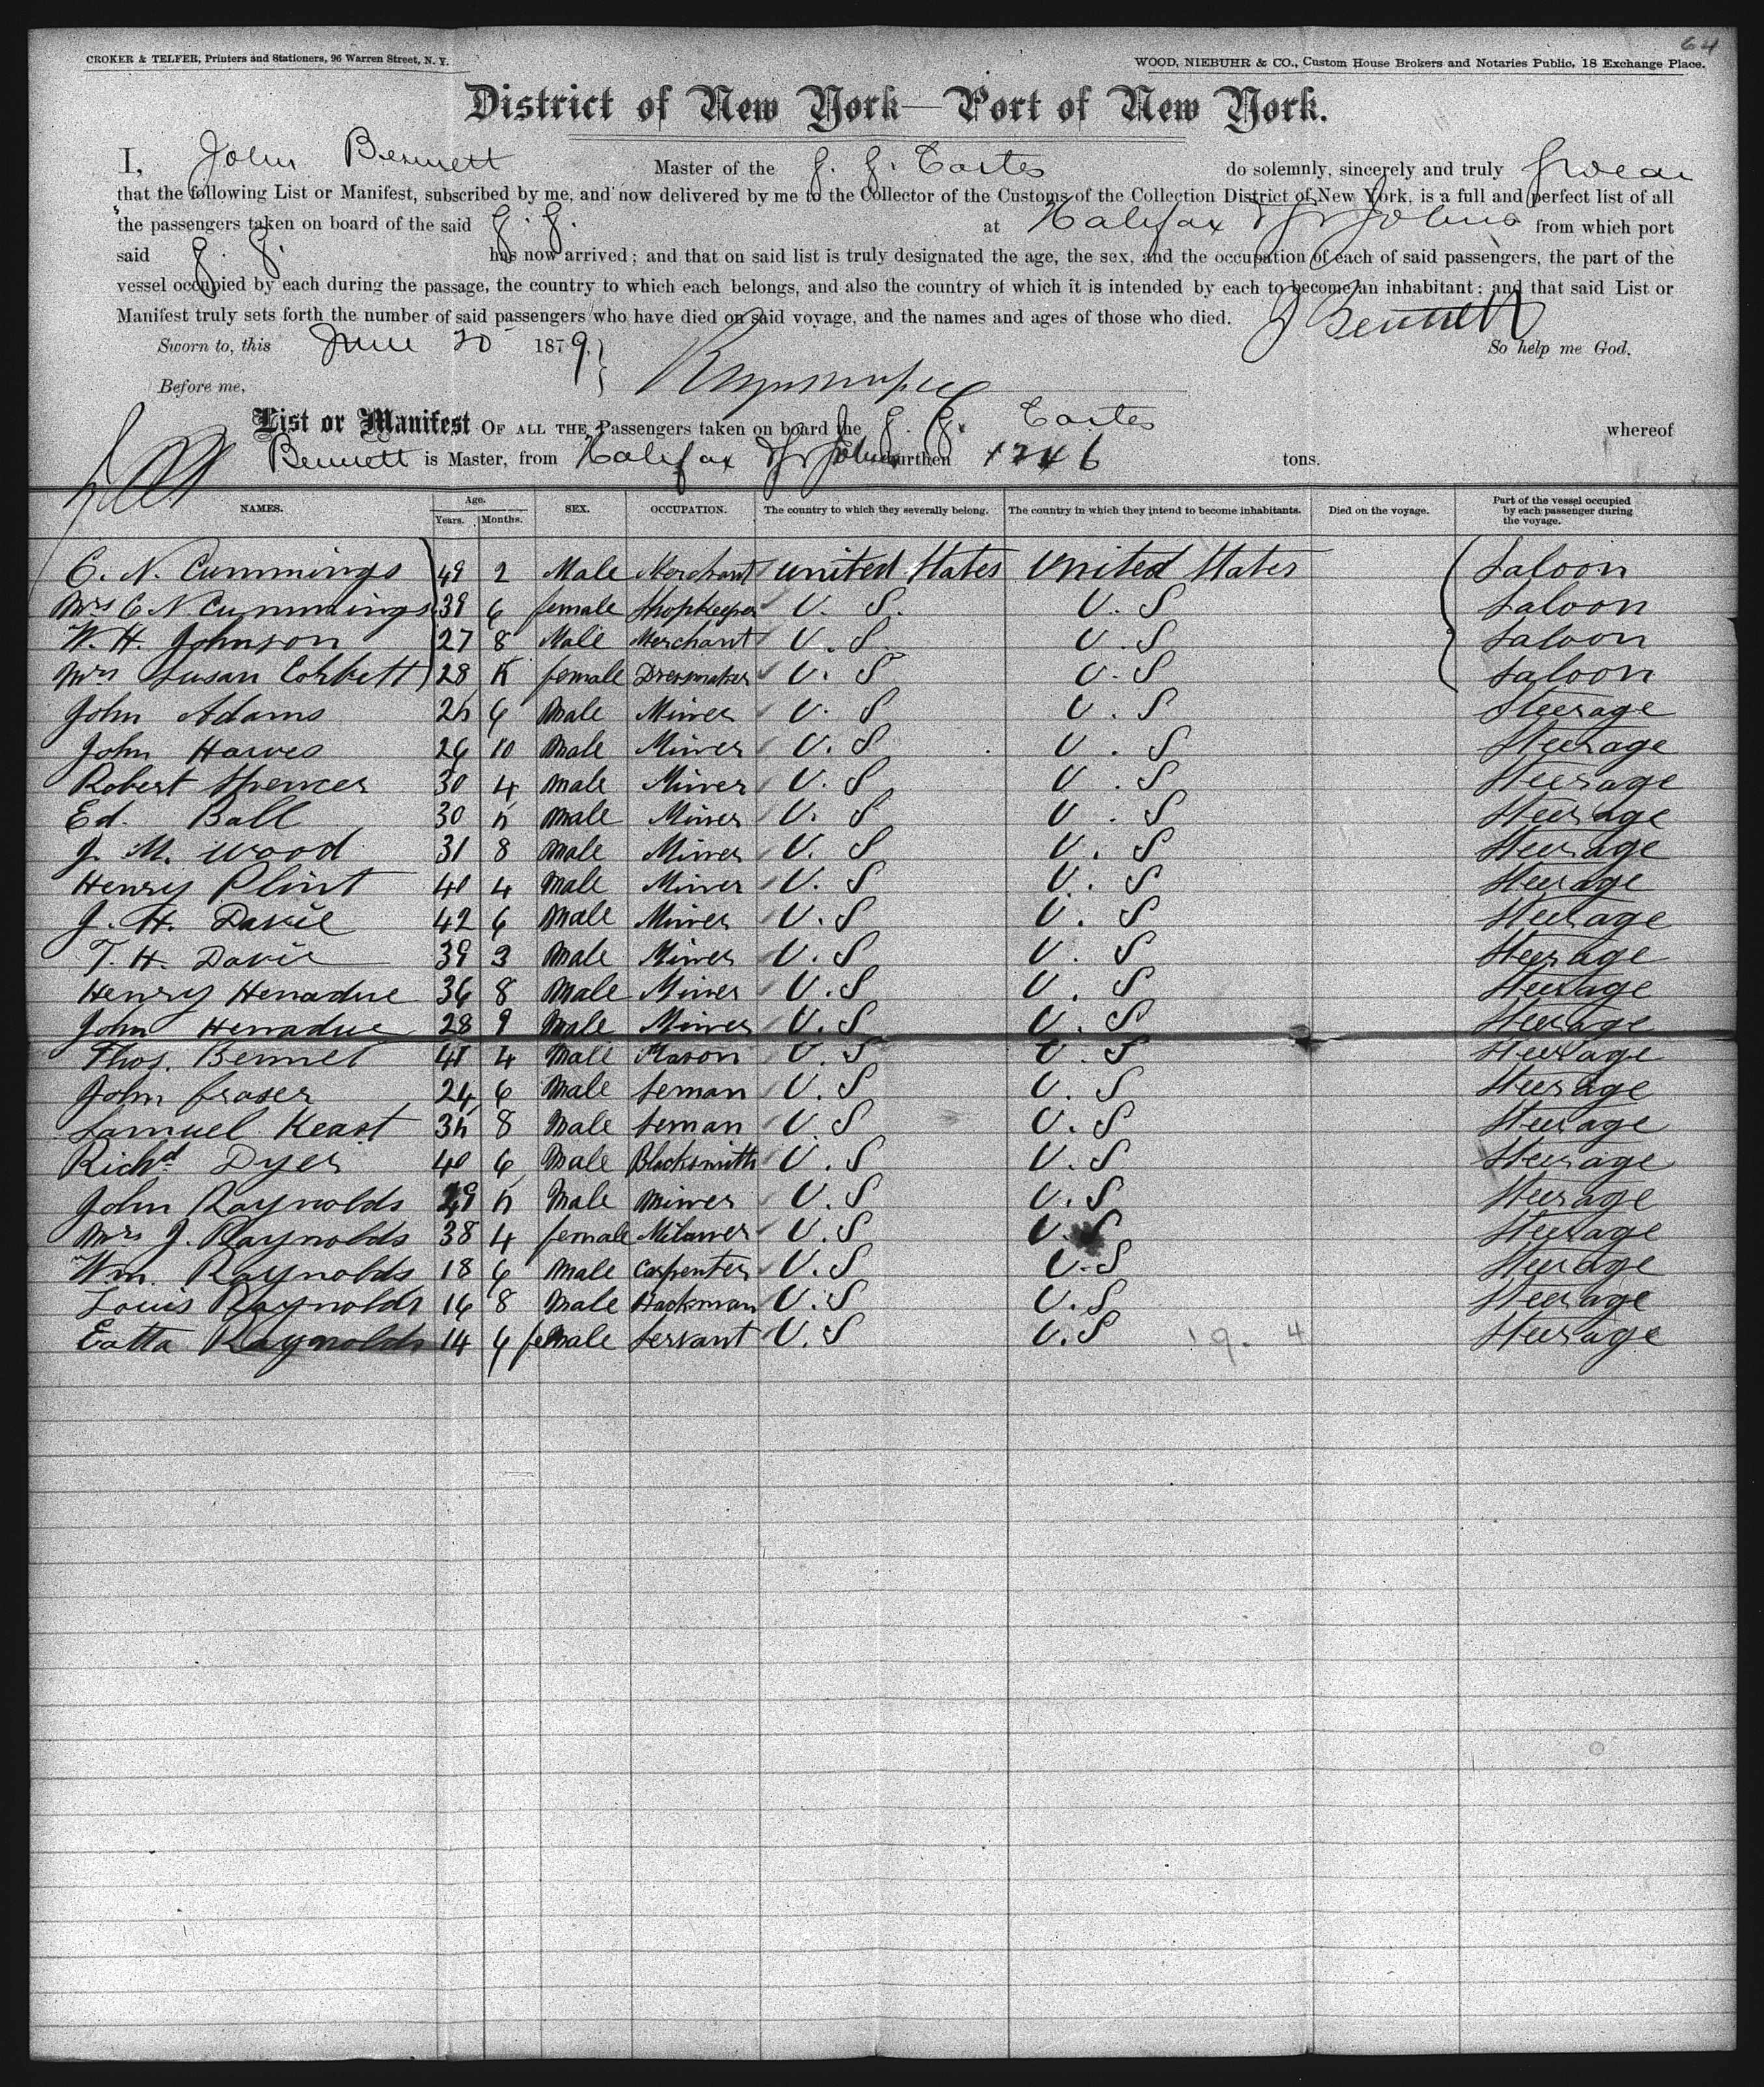 64
CROKER & TELFER, Printers and Stationers, 96 Warren Street, N. Y.
WOOD, NIEBUHR & CO., Custom House Brokers and Notaries Public, 18 Exchange Place.
District of New York—Port of New York.
I, John Bennett Master of the G. G. do solemnly, sincerely and truly swear
that the following List or Manifest, subscribed by me, and now delivered by me to the Collector of the Customs of the Collection District of New York, is a full and perfect list of all
the passengers taken on board of the said at Halifax & St Johns from which port
said has now arrived; and that on said list is truly designated the age, the sex, and the occupation of each of said passengers, the part of the
vessel occupied by each during the passage, the country to which each belongs, and also the country of which it is intended by each to become an inhabitant; and that said List or
Manifest truly sets forth the number of said passengers who have died on said voyage, and the names and ages of those who died. J Bennett
Sworn to, this June 20 1879. So help me God.
Before me,
List or Manifest OF ALL THE Passengers taken on board the whereof
Bennett is Master, from Halifax & St Johns burthen 1246 tons.
NAMES. Age. Years. Months. SEX. OCCUPATION. The country to which they severally belong. The country in which they intend to become inhabitants. Died on the voyage. Part of the vessel occupied by each passenger during the voyage.
C. N. Cummings 49 2 Male Merchant United States United States Saloon
Mrs C N Cummings 39 6 female Shopkeeper U. S. U. S Saloon
W. H. Johnson 27 8 Male Merchant U. S. U. S Saloon
Mrs Susan Corbett 28 5 female Dresmaker U. S U. S Saloon
John Adams 25 6 Male Miner U. S U. S Steerage
John Hawes 26 10 Male Miner U. S U. S Steerage
Robert Spencer 30 4 Male Miner U. S U. S Steerage
Ed. Ball 30 5 Male Miner U. S U. S Steerage
J. M. Wood 31 8 Male Miner U. S U. S Steerage
Henry Plint 40 4 Male Miner U. S U. S Steerage
J. H. Davie 42 6 Male Miner U. S U. S Steerage
T. H. Davie 39 3 Male Miner U. S U. S Steerage
Henry Henadue 36 8 Male Miner U. S U. S Steerage
John Henadue 28 9 Male Miner U. S U. S Steerage
Thos. Bennet 41 4 Male Mason U. S U. S Steerage
John fraser 24 6 Male Seman U. S U. S Steerage
Samuel Keast 35 8 Male Seman U S U. S Steerage
Richd Dyer 40 6 Male Blacksmith U. S U. S Steerage
John Raynolds 5 Male Miner U. S U. S Steerage
Mrs J. Raynolds 38 4 female Milaner U. S U. S Steerage
Wm. Raynolds 18 6 Male Carpenter U. S U. S Steerage
Louis Raynolds 16 8 Male Hackman U. S U. S Steerage
Eatta Raynolds 14 6 female Servant U. S U. S 19. 4 Steerage